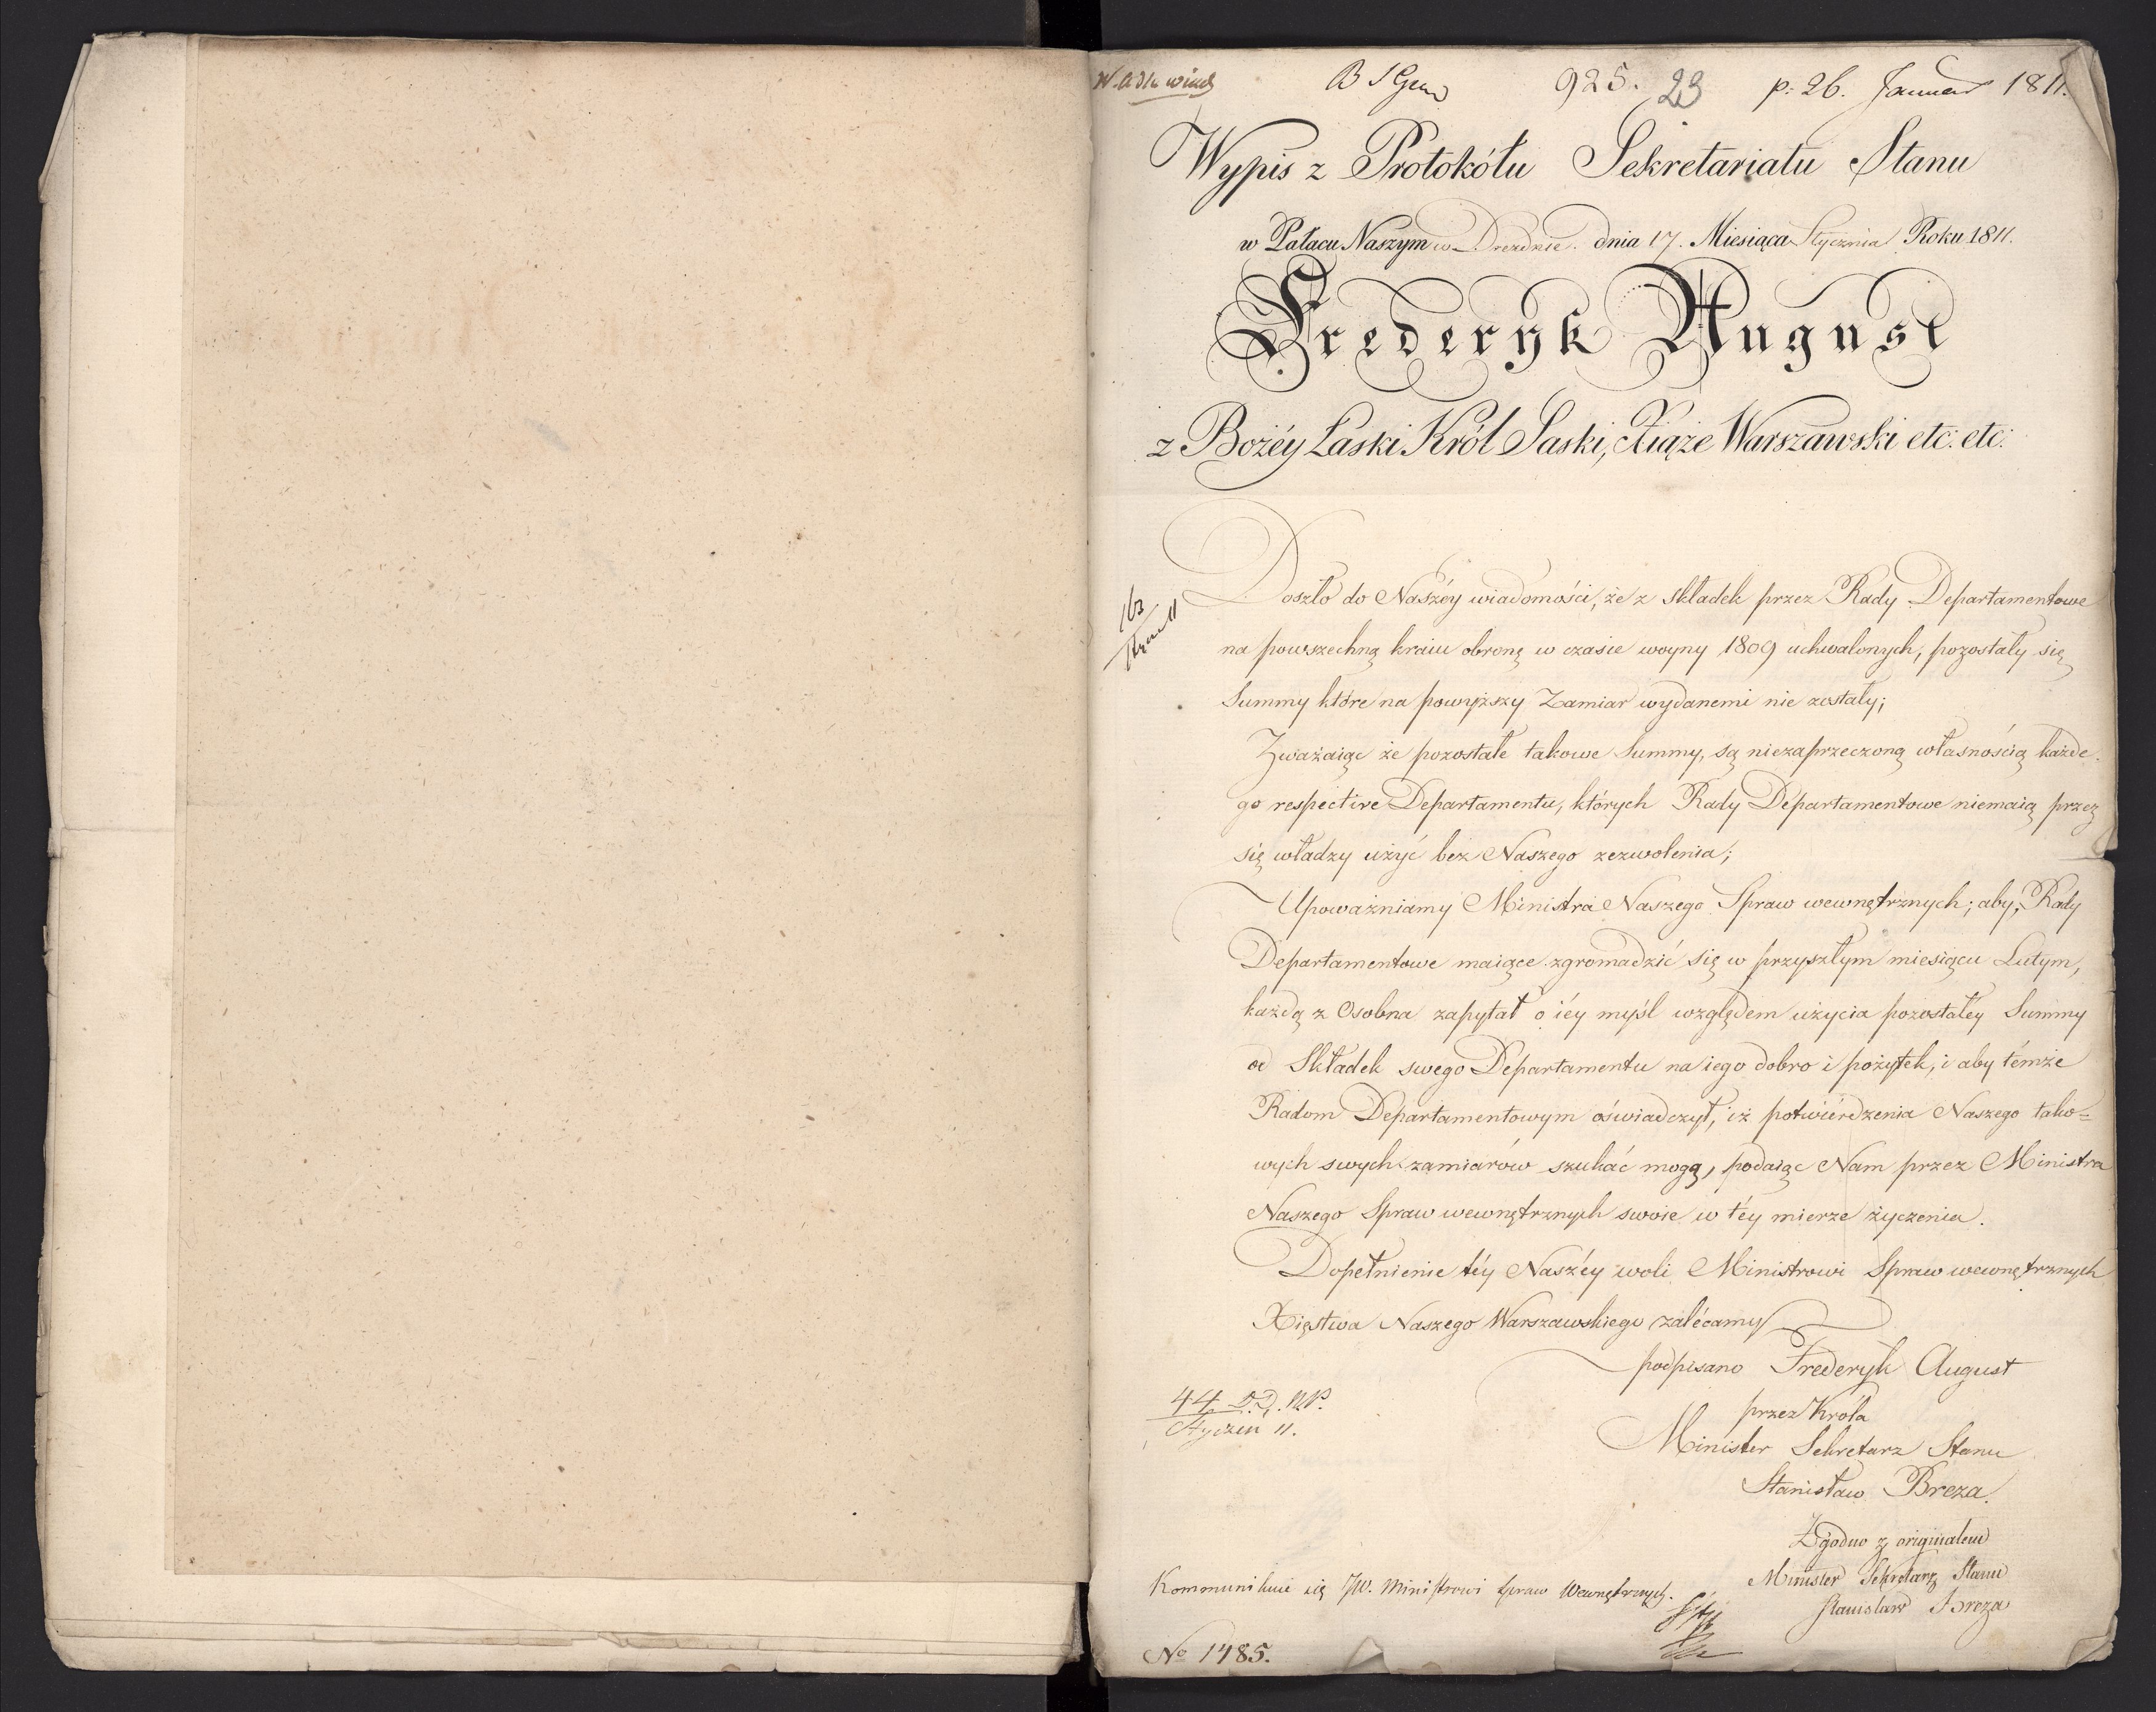 925. 23 p. 26. Januar 1811.
Wypis z Protokółu Sekretariatu Stanu
w Pałacu Naszym w Dreznie dnia 17. Miesiąca Stycznia Roku 1811.
Frederyk August
z Bożéy Łaski Król Saski, Xiąże Warszawski etc: etc:
Doszło do Naszéy wiadomości, że z składek przez Rady Departamentowe
na powszechną kraiu obronę w czasie woyny 1809 uchwalonych, pozostały się
Summy które na powyższy Zamiar wydanemi nie zostały;
Zważaiąc że pozostałe takowe Summy, są niezaprzeczoną własnością każde-
go respective Departamentu, których Rady Departamentowe niemaią przez
się władzy użyć bez Naszego zezwolenia;
Upoważniamy Ministra Naszego Spraw wewnętrznych; aby, Rady
Departamentowe maiące zgromadzić się w przyszłym miesiącu Lutym,
każdą z Osobna zapytał o iéy myśl względem użycia pozostałéy Summy
od Składek swego Departamentu na iego dobro i pożytek, i aby témże
Radom Departamentowym oświadczył, iż potwiérdzenia Naszego tako=
wych swych zamiarów szukać mogą, podaiąc Nam przez Ministra
Naszego Spraw wewnętrznych swoie w téy mierze życzenia.
Dopełnienie téy Naszéy woli Ministrowi Spraw wewnętrznych
Xięstwa Naszego Warszawskiego zalécamy
podpisano Frederyk August
przez Króla
Minister Sekretarz Stanu
Stanisław Breza.
44 D.D. N.P.
Styczeń 11.
Zgodno z originałem
Minister Sekretarz Stanu
Stanisław Breza
Kommunikuie się JW. Ministrowi Spraw Wewnętrznych.
No 1485.